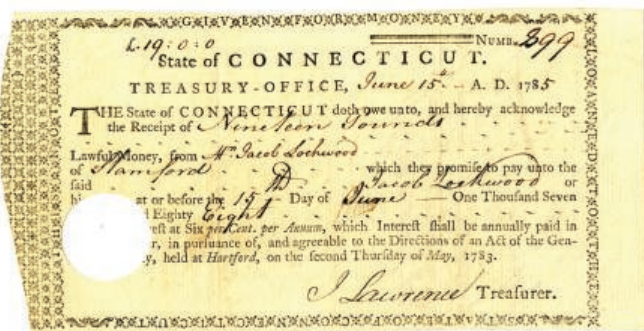 GIVEN FOR MONEY
£19:0:0
NUMB. 899
State of CONNECTICUT.
TREASURY-OFFICE, June 15th - A. D. 1785
THE State of CONNECTICUT doth owe unto, and hereby acknowledge
the Receipt of Nineteen Pounds
Lawful Money, from Mr. Jacob Lockwood
of Stamford which they promise to pay unto the
said Jacob Lockwood or
hi at or before the 15th Day of June One Thousand Seven
d Eighty Eight
est at Six per Cent. per Annum, which Interest shall be annually paid in
r, in pursuance of, and agreeable to the Directions of an Act of the Gen-
y, held at Hartford, on the second Thursday of May, 1783.
J Lawrence Treasurer.
STATE OF CONNECTICUT
LOANED TO THE